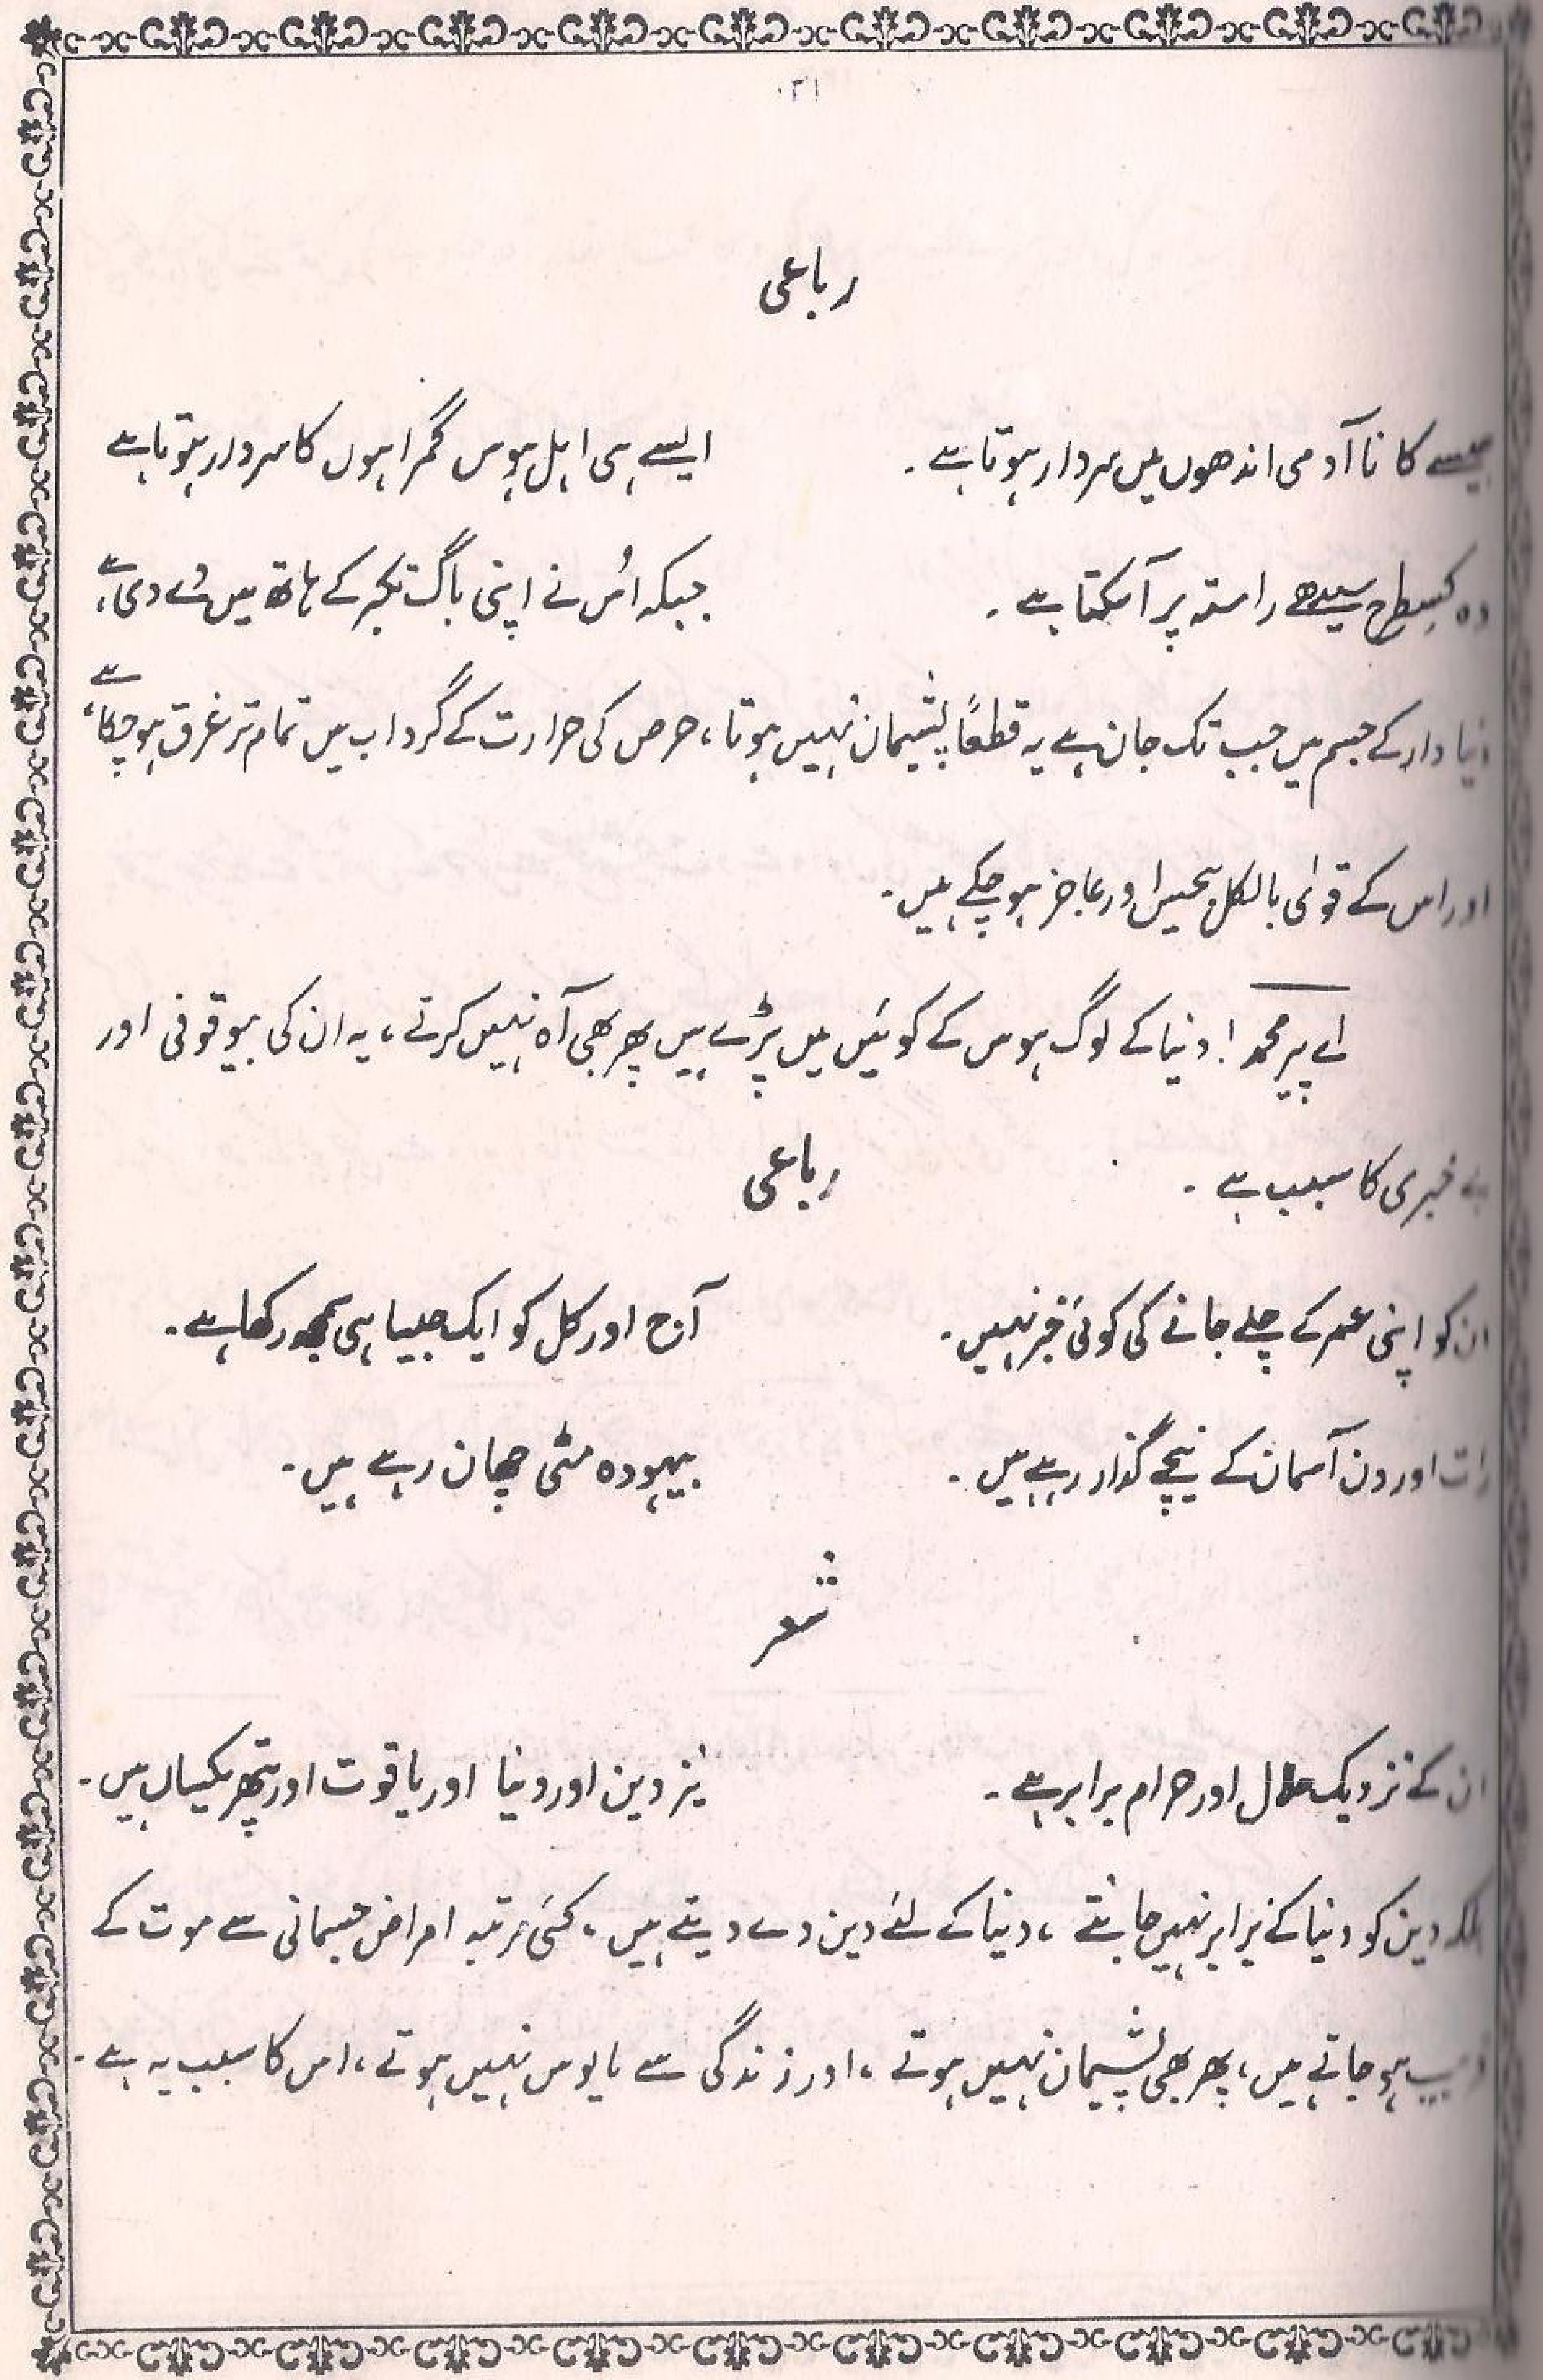 ۳۱
رباعی
جیسے کانا آدمی اندھوں میں سردار ہوتا ہے۔ ایسے ہی اہل ہوس گمراہوں کا سردار ہوتا ہے
وہ کسطرح سیدھے راستہ پر آسکتا ہے۔ جبکہ اُس نے اپنی باگ تکبر کے ہاتھ میں دے دی ہے،
دنیا دار کے جسم میں جب تک جان ہے یہ قطعاً پشیمان نہیں ہوتا، حرص کی حرارت کے گرداب میں تمام تر غرق ہو چکا ہے،
اور اس کے قوٰی بالکل بیحس اور عاجز ہو چکے ہیں۔
اے پیر محمد! دنیا کے لوگ ہوس کے کوئیں میں پڑے ہیں پھر بھی آہ نہیں کرتے، یہ ان کی بیوقوفی اور
بے خبری کا سبب ہے۔ رباعی
ان کو اپنی عمر کے چلے جانے کی کوئی خبر نہیں۔ آج اور کل کو ایک جیسا ہی سمجھ رکھا ہے۔
رات اور دن آسمان کے نیچے گذار رہے ہیں۔ بیہودہ مٹی چھان رہے ہیں۔
شعر
ان کے نزدیک حلال اور حرام برابر ہے۔ نیز دین اور دنیا اور یاقوت اور پتھر یکساں ہیں۔
بلکہ دین کو دنیا کے برابر نہیں جانتے، دنیا کے لئے دین دے دیتے ہیں، کئی مرتبہ امراض جسمانی سے موت کے
قریب ہو جاتے ہیں، پھر بھی پشیمان نہیں ہوتے، اور زندگی سے مایوس نہیں ہوتے، اس کا سبب یہ ہے۔